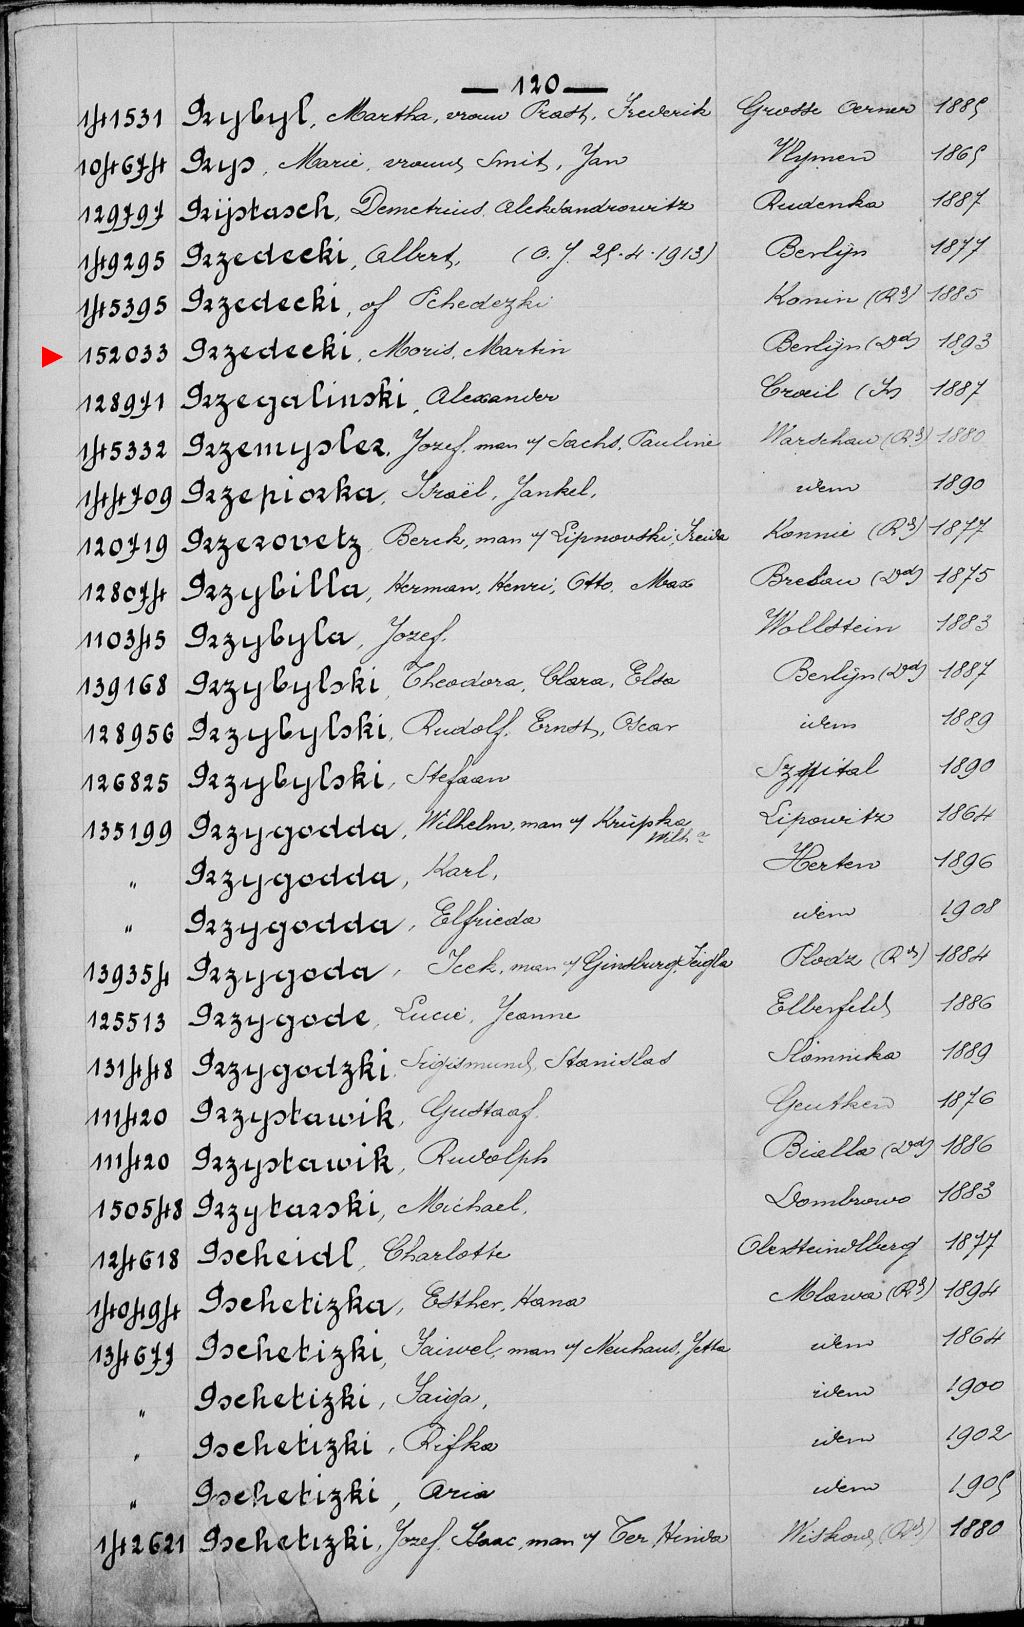 — 120 —
141531 Przybyl, Martha, vrouw Prast, Frederik Grosse Oerner 1885
104674 Przys, Marie, vrouw Smit, Jan Wymen 1865
129797 Prijstasch, Demetrius Aleksandrowitz Rudenka 1887
149295 Przedecki, Albert, (O. J. 25.4.1913) Berlijn 1877
145395 Przedecki, of Pchedezki Konin (Rd) 1885
152033 Przedecki, Moris, Martin Berlijn (Dd) 1893
128971 Przegalinski, Alexander Craeil (Fr) 1887
145332 Przemysler, Jozef, man v Sachs, Pauline Warschau (Rd) 1880
144709 Przepiorka, Israël, Jankel, idem 1890
120719 Przerovetz, Berck, man v Lipnovski, Freida Konnie (Rd) 1877
128074 Przybilla, Herman, Henri, Otto, Max Breslau (Dd) 1875
110345 Przybyla, Jozef. Wollstein 1883
139168 Przybylski, Theodora, Clara, Elsa Berlijn (Dd) 1887
128956 Przybylski, Rudolf, Ernst, Oscar idem 1889
126825 Przybylski, Stefaan Szpital 1890
135199 Przygodda, Wilhelm, man v Krupka Wilha Lipowitz 1864
" Przygodda, Karl, Herten 1896
" Przygodda, Elfrieda idem 1908
139354 Przygoda, Icek, man v Ginsburg, Feigla Plodz (Rd) 1884
125513 Przygode, Lucie, Jeanne Elberfeld 1886
131448 Przygodzki, Sigismund, Stanislas Slomnika 1889
111420 Przystawik, Gustaaf. Geutken 1876
111420 Przystawik, Rudolph Bialla (Dd) 1886
150548 Przytarski, Michael, Dombrowo 1883
124618 Pscheidl, Charlotte Obersteindlberg 1877
140494 Pschetizka, Esther, Hana Mlawa (Rd) 1894
134677 Pschetizki, Faiwel, man v Neuhaus, Jetta idem 1864
" Pschetizki, Faiga, idem 1900
" Pschetizki, Rifka idem 1902
" Pschetizki, Aria idem 1905
142621 Pschetizki, Jozef, Isaac, man v Ter, Hinda Wiskow (Rd) 1880